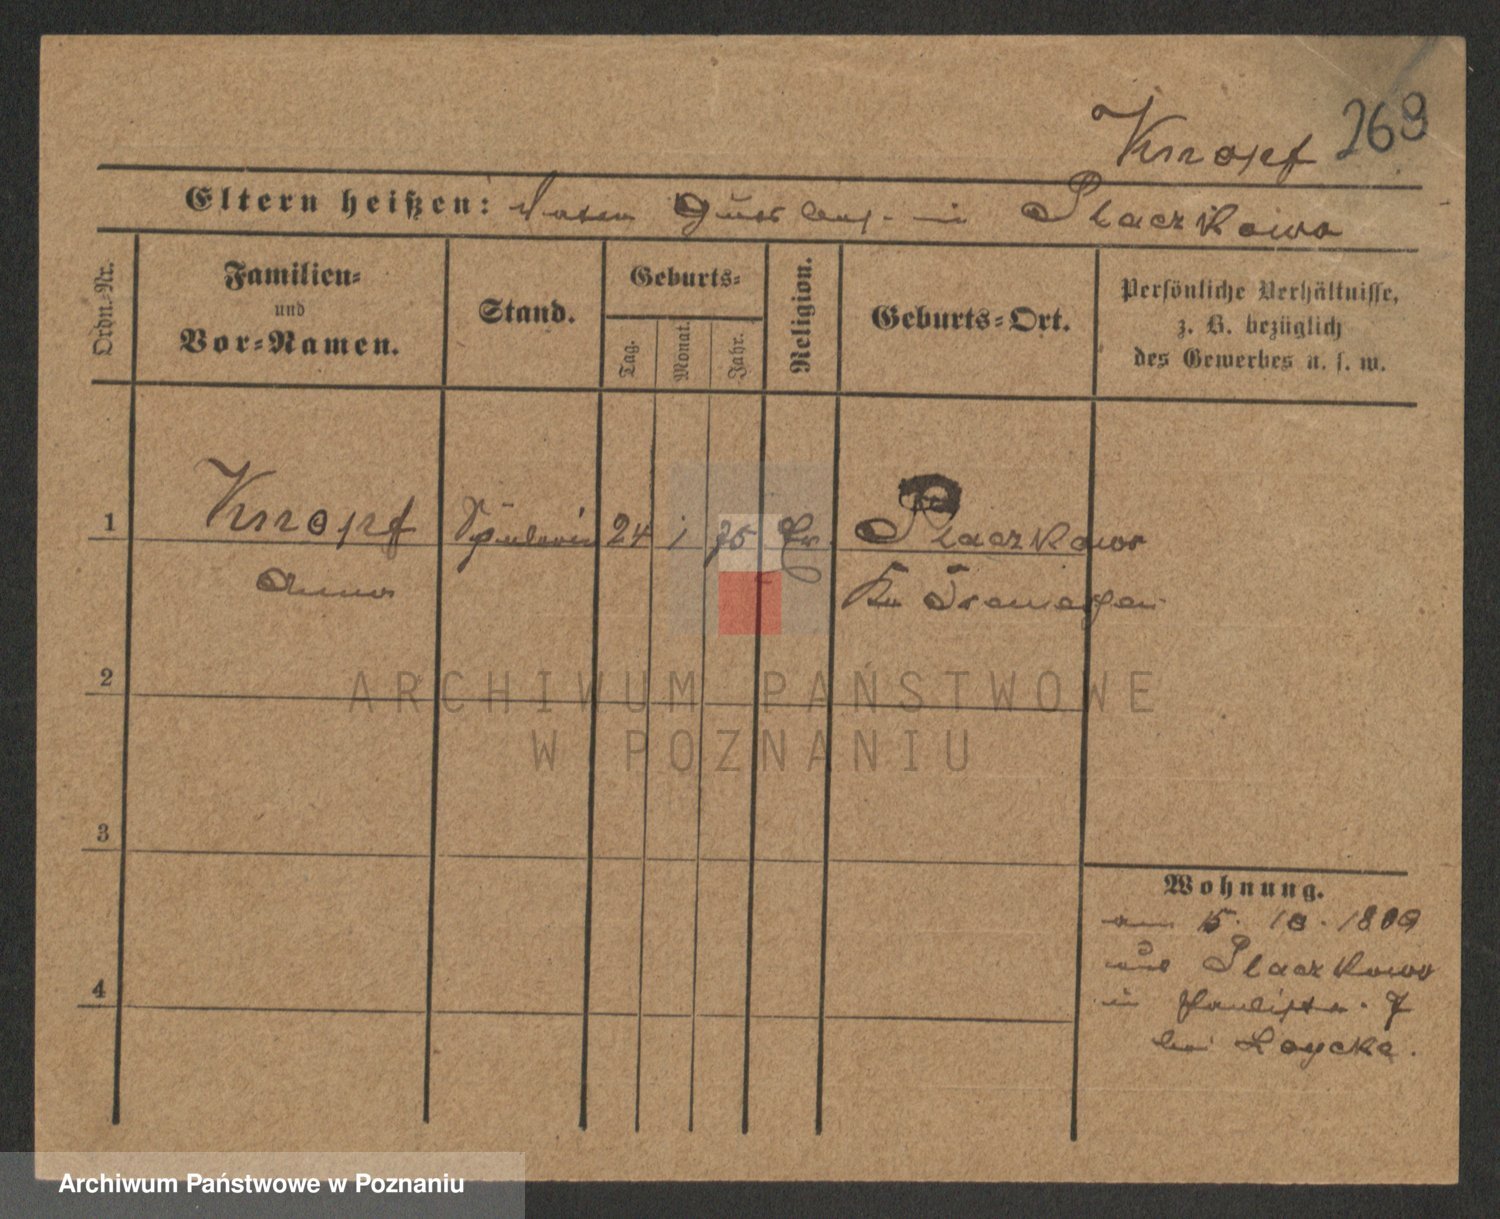 Knopf 269
Eltern heißen: Vater in Placzkowo
Ordn.-Nr.
Familien-
und
Vor-Namen.
Stand.
Geburts-
Tag.
Monat.
Jahr.
Religion.
Geburts-Ort.
Persönliche Verhältnisse,
z. B. bezüglich
des Gewerbes u. s. w.
1 Knopf 24 1 75 Ev. Placzkowo
Anna Kr.
2
3
4
Wohnung.
am 5. 10. 1889
aus Placzkowo
in 7
bei
ARCHIWUM PAŃSTWOWE
W POZNANIU
Archiwum Państwowe w Poznaniu